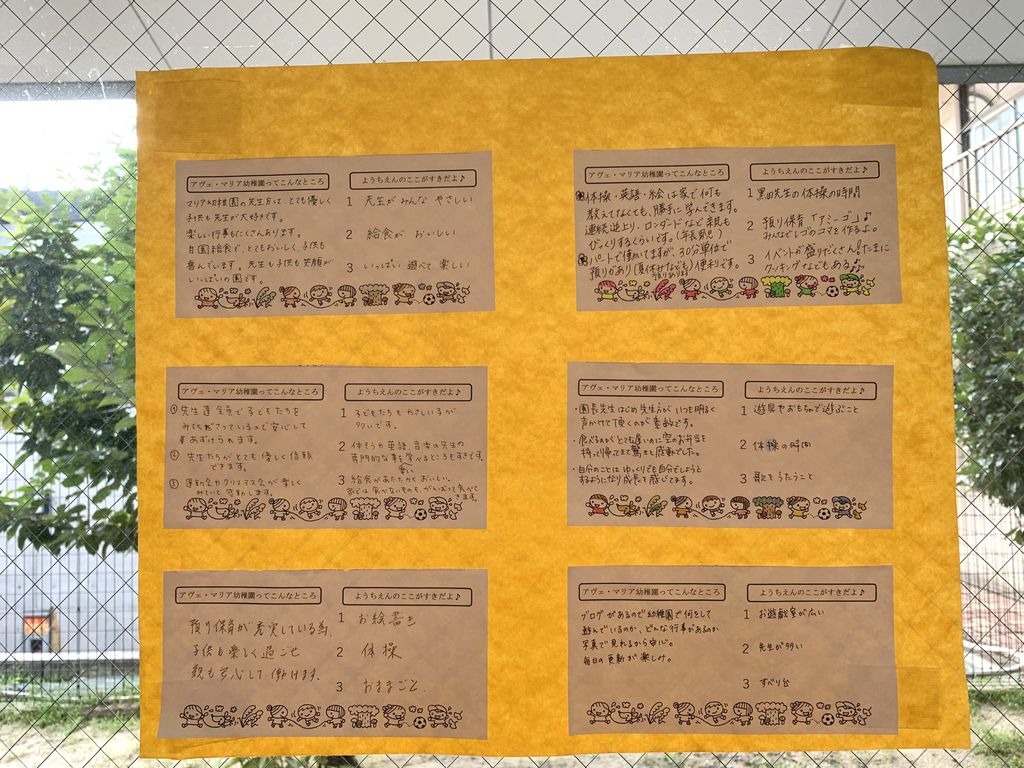 アヴェ・マリア幼稚園ってこんなところ
マリア幼稚園の先生方は、とても優しく
子供も先生が大好きです。
楽しい行事もたくさんあります。
自園給食で、とてもおいしく、子供も
喜んでいます。先生も子供も笑顔が
いっぱいの園です。
ようちえんのここがすきだよ♪
1 先生がみんな やさしい
2 給食が おいしい
3 いっぱい 遊べて 楽しい
アヴェ・マリア幼稚園ってこんなところ
体操・英語・絵は家で何も
教えてなくても、勝手に学んできます。
連続逆上り、ロンダードなど親も
びっくりするくらいです。(年長児)
パートで働いてますが、30分単位で
預りがあり(夏休みなども)便利です。
預りあります
ようちえんのここがすきだよ♪
1 黒田先生の体操の時間
2 預り保育「アミーゴ」♪
みんなでレゴのコマを作るよ。
3 イベントが盛りだくさん!たまに
クッキングなどもある♪
アヴェ・マリア幼稚園ってこんなところ
① 先生達全員で子どもたちを
みてくださっているので安心して
あずけられます。
② 先生たちがとても優しく信頼
できます。
③ 運動会やクリスマス会が楽しく
ようちえんのここがすきだよ♪
1 子どもたちもやさしい子が
多いです。
2 体そうや英語、音楽の先生の
専門的な事も学べるところもすきです。
3 給食があたたかくおいしい。
家では食べないものも、がんばって食べて
きます。
アヴェ・マリア幼稚園ってこんなところ
・園長先生はじめ先生方が、いつも明るく
声かけて頂くのが素敵です。
・食べるのがとても遅いのに空のお弁当を
持って帰ってきて驚きと感動でした。
・自分のことは ゆっくりでも自分でしようと
するようになり成長を感じてます。
ようちえんのここがすきだよ♪
1 遊具やおもちゃで遊ぶこと
2 体操の時間
3 歌をうたうこと
アヴェ・マリア幼稚園ってこんなところ
預り保育が充実している為、
子供も楽しく過ごせ
親も安心して働けます。
ようちえんのここがすきだよ♪
1 お絵書き
2 体操
3 おままごと。
アヴェ・マリア幼稚園ってこんなところ
ブログがあるので幼稚園で何をして
遊んでいるのか、どんな行事があるのか
写真で見れるから安心。
毎日の更新が楽しみ。
ようちえんのここがすきだよ♪
1 お遊戯室が広い
2 先生が多い
3 すべり台